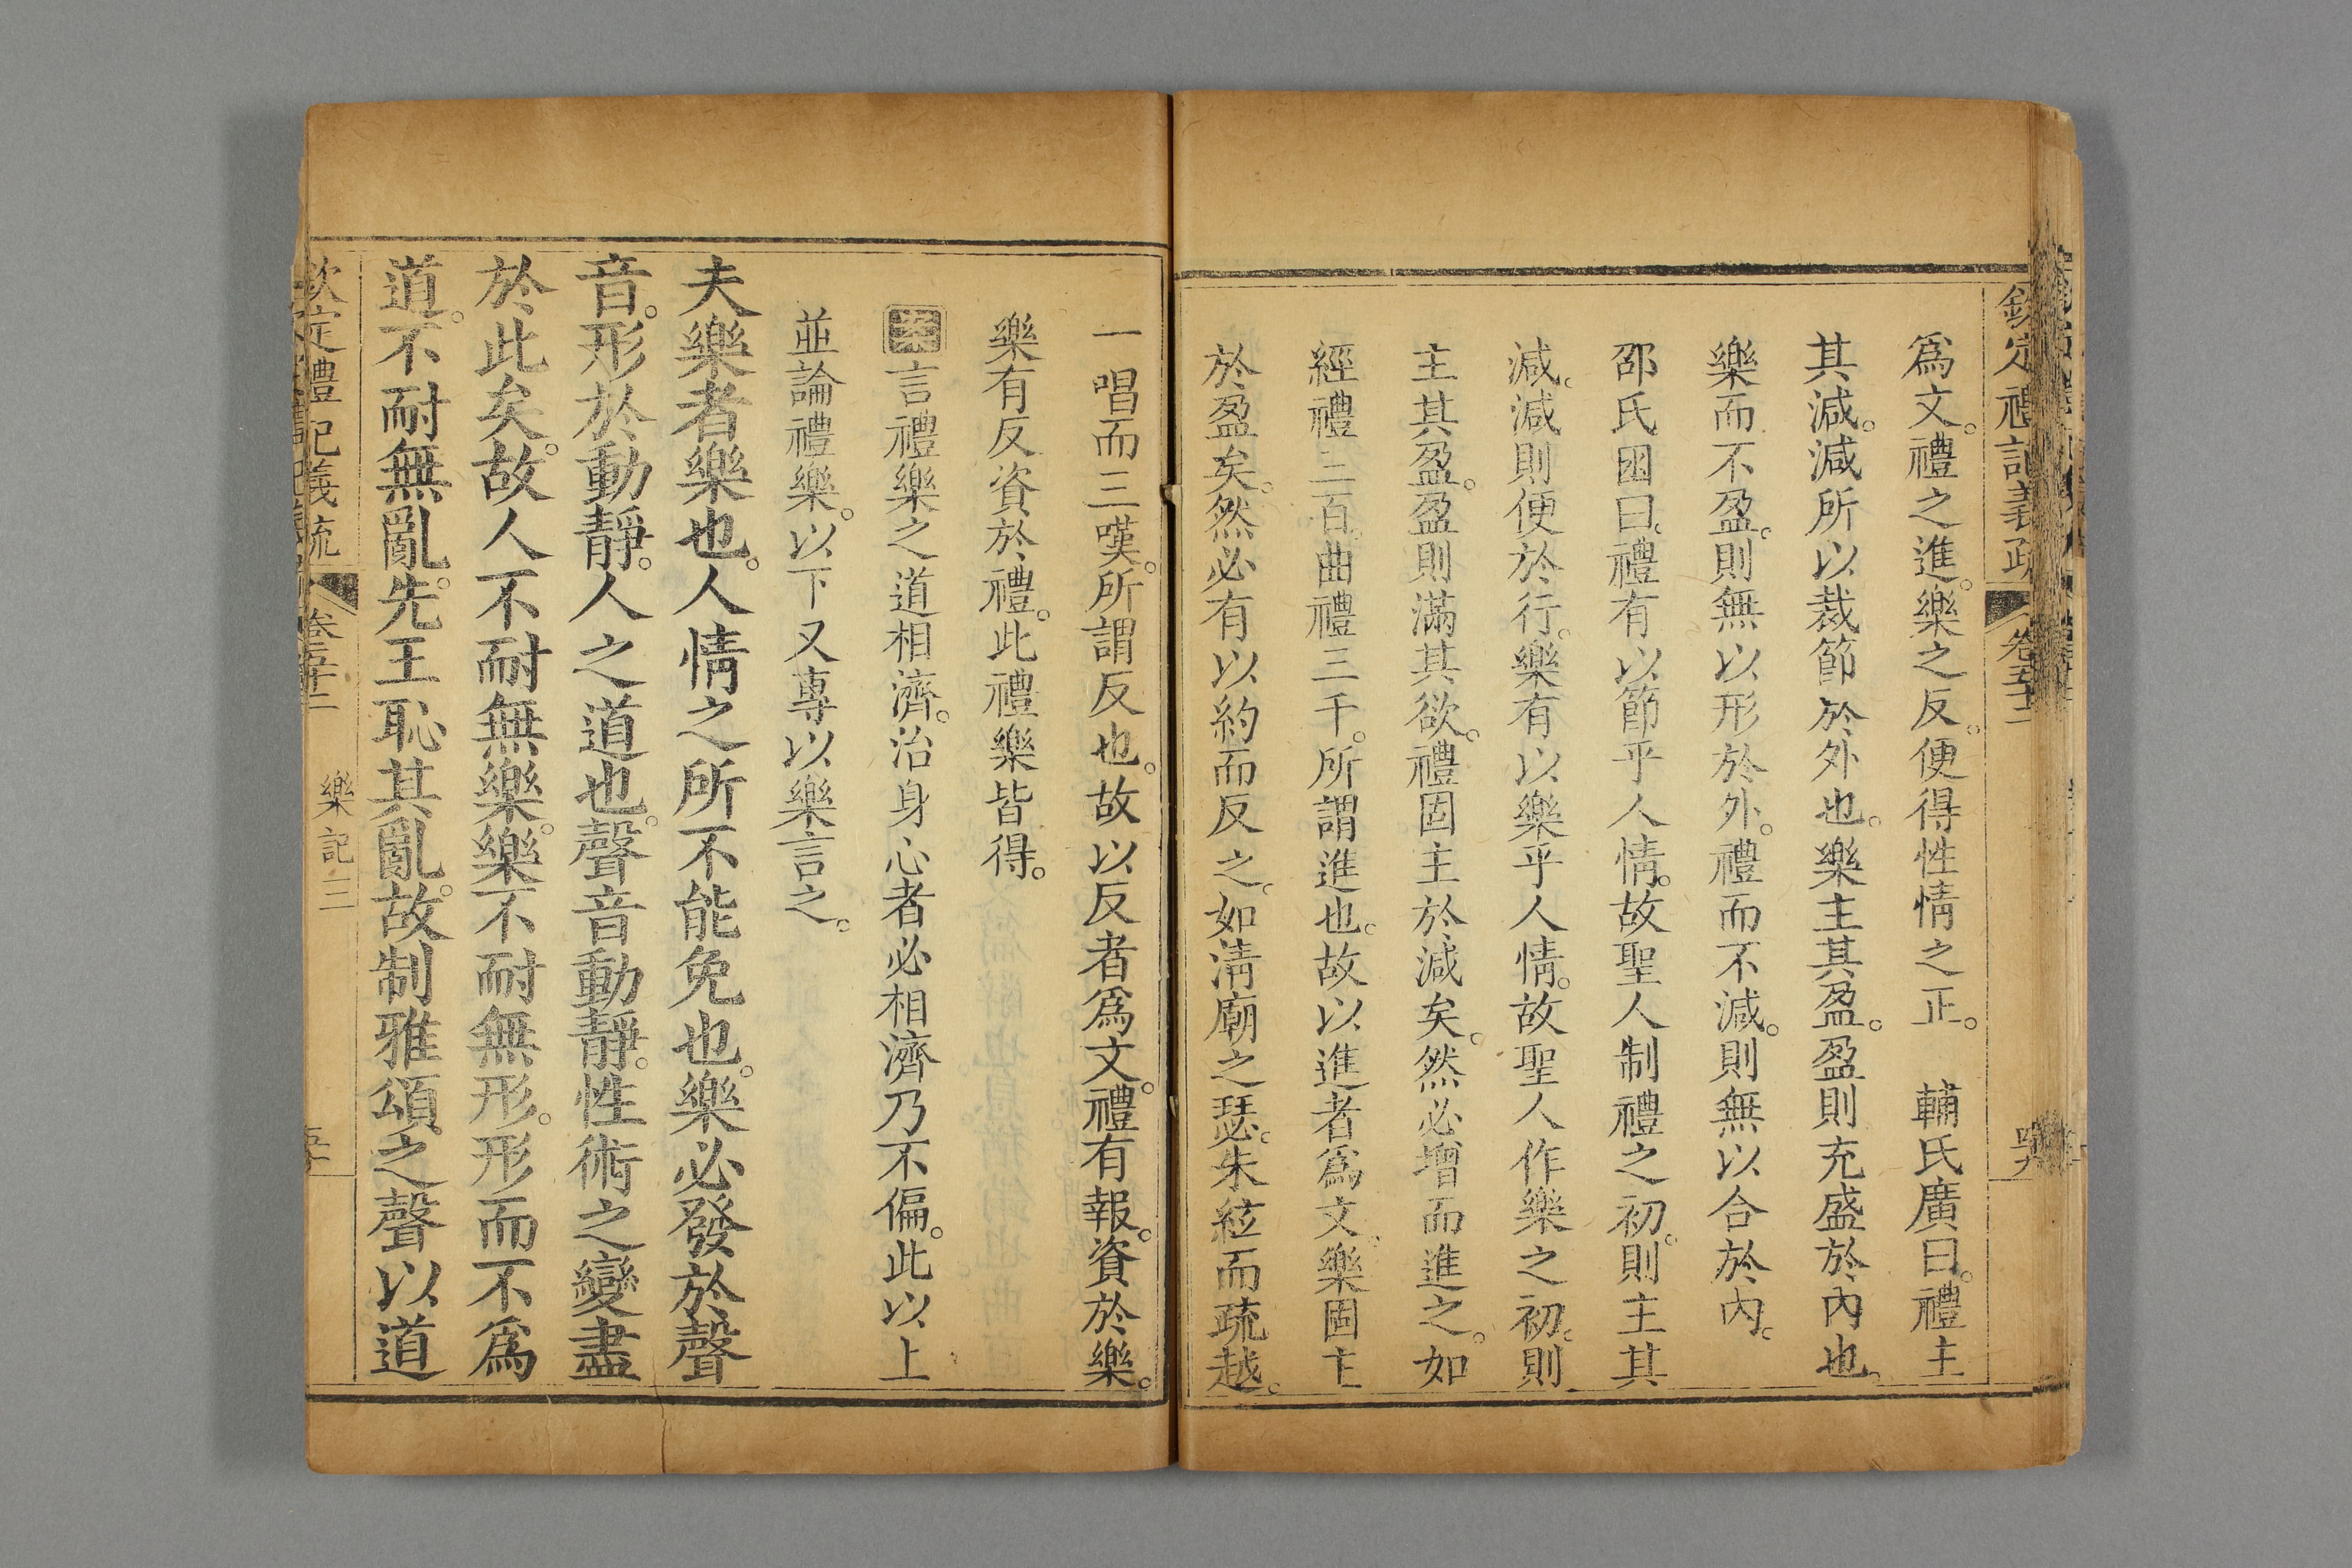 欽定禮記義疏 卷五十二
爲文。禮之進。樂之反。便得性情之正。 輔氏廣曰。禮主
其減。減所以裁節於外也。樂主其盈。盈則充盛於內也。
樂而不盈。則無以形於外。禮而不減。則無以合於內。
邵氏囦曰。禮有以節乎人情。故聖人制禮之初。則主其
減。減則便於行。樂有以樂乎人情。故聖人作樂之初。則
主其盈。盈則滿其欲。禮固主於減矣。然必增而進之。如
經禮三百。曲禮三千。所謂進也。故以進者爲文。樂固主
於盈矣。然必有以約而反之。如淸廟之瑟。朱絃而疏越。
一唱而三嘆。所謂反也。故以反者爲文。禮有報。資於樂。
樂有反資於禮。此禮樂皆得。
案言禮樂之道相濟。治身心者必相濟乃不偏。此以上
並論禮樂。以下又專以樂言之。
夫樂者樂也。人情之所不能免也。樂必發於聲
音。形於動靜。人之道也。聲音動靜。性術之變盡
於此矣。故人不耐無樂。樂不耐無形。形而不爲
道。不耐無亂。先王恥其亂。故制雅頌之聲以道
欽定禮記義疏 卷五十二 樂記三